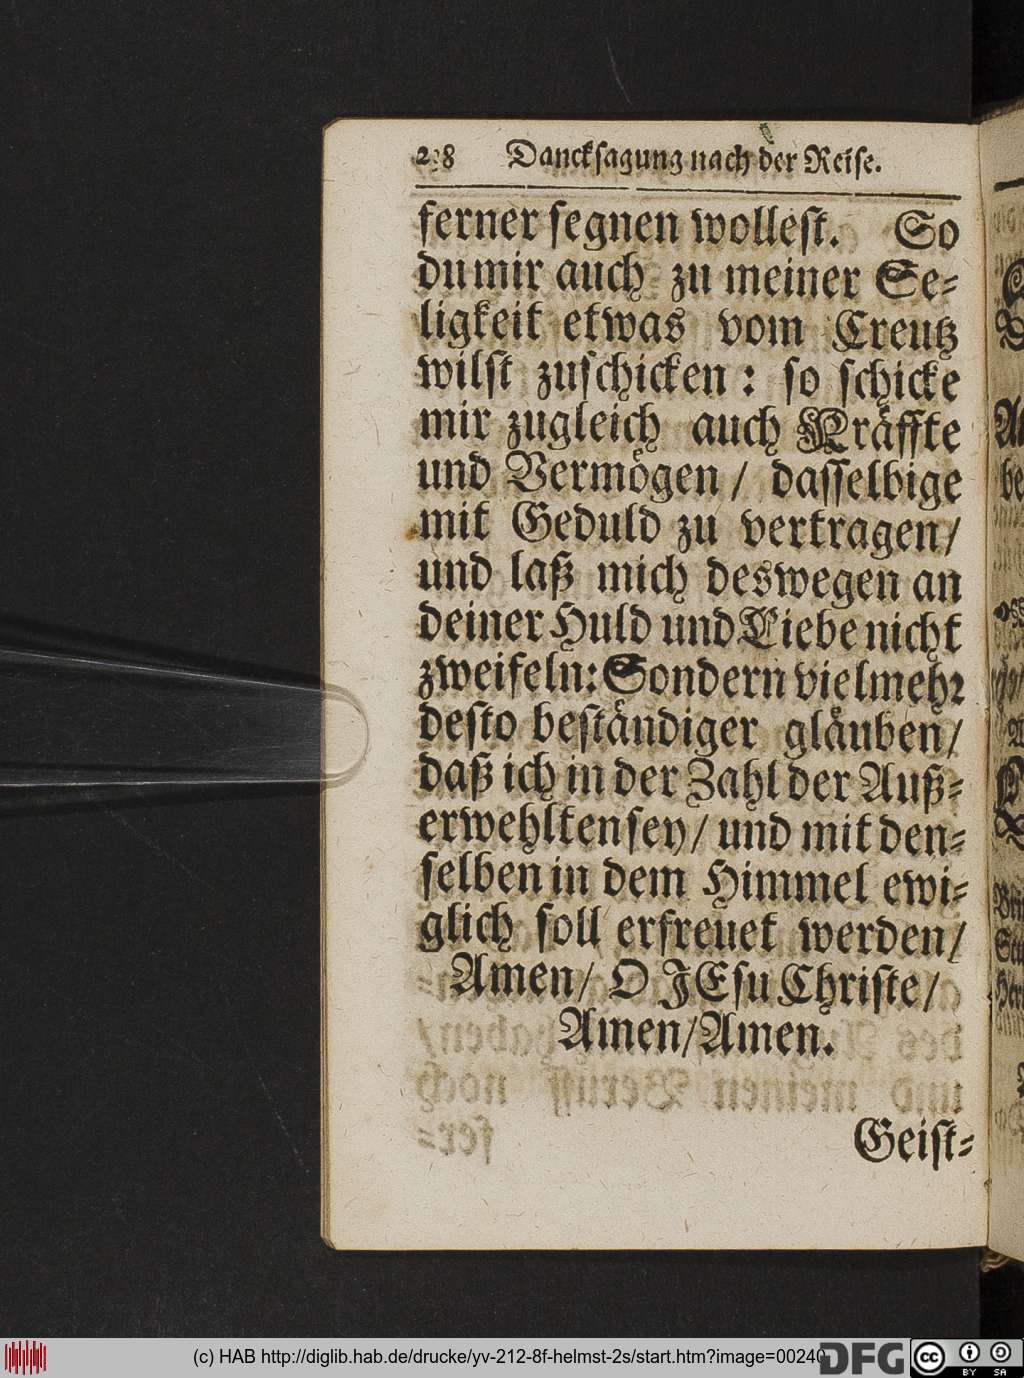 Dancksagung nach der Reise.
ferner segnen wollest. So
du mir auch zu meiner Se-
ligkeit etwas vom Creutz
wilst zuschicken: so schicke
mir zugleich auch Kräffte
und Vermögen / dasselbige
mit Geduld zu vertragen/
und laß mich deswegen an
deiner Huld und Liebe nicht
zweifeln: Sondern vielmehr
desto beständiger gläuben/
daß ich in der Zahl der Auß-
erwehlten sey/ und mit den-
selben in dem Himmel ewi-
glich soll erfreuet werden/
Amen/ O JEsu Christe/
Amen/Amen.
Geist-
(c) HAB http://diglib.hab.de/drucke/yv-212-8f-helmst-2s/start.htm?image=00240
DFG
cc BY SA